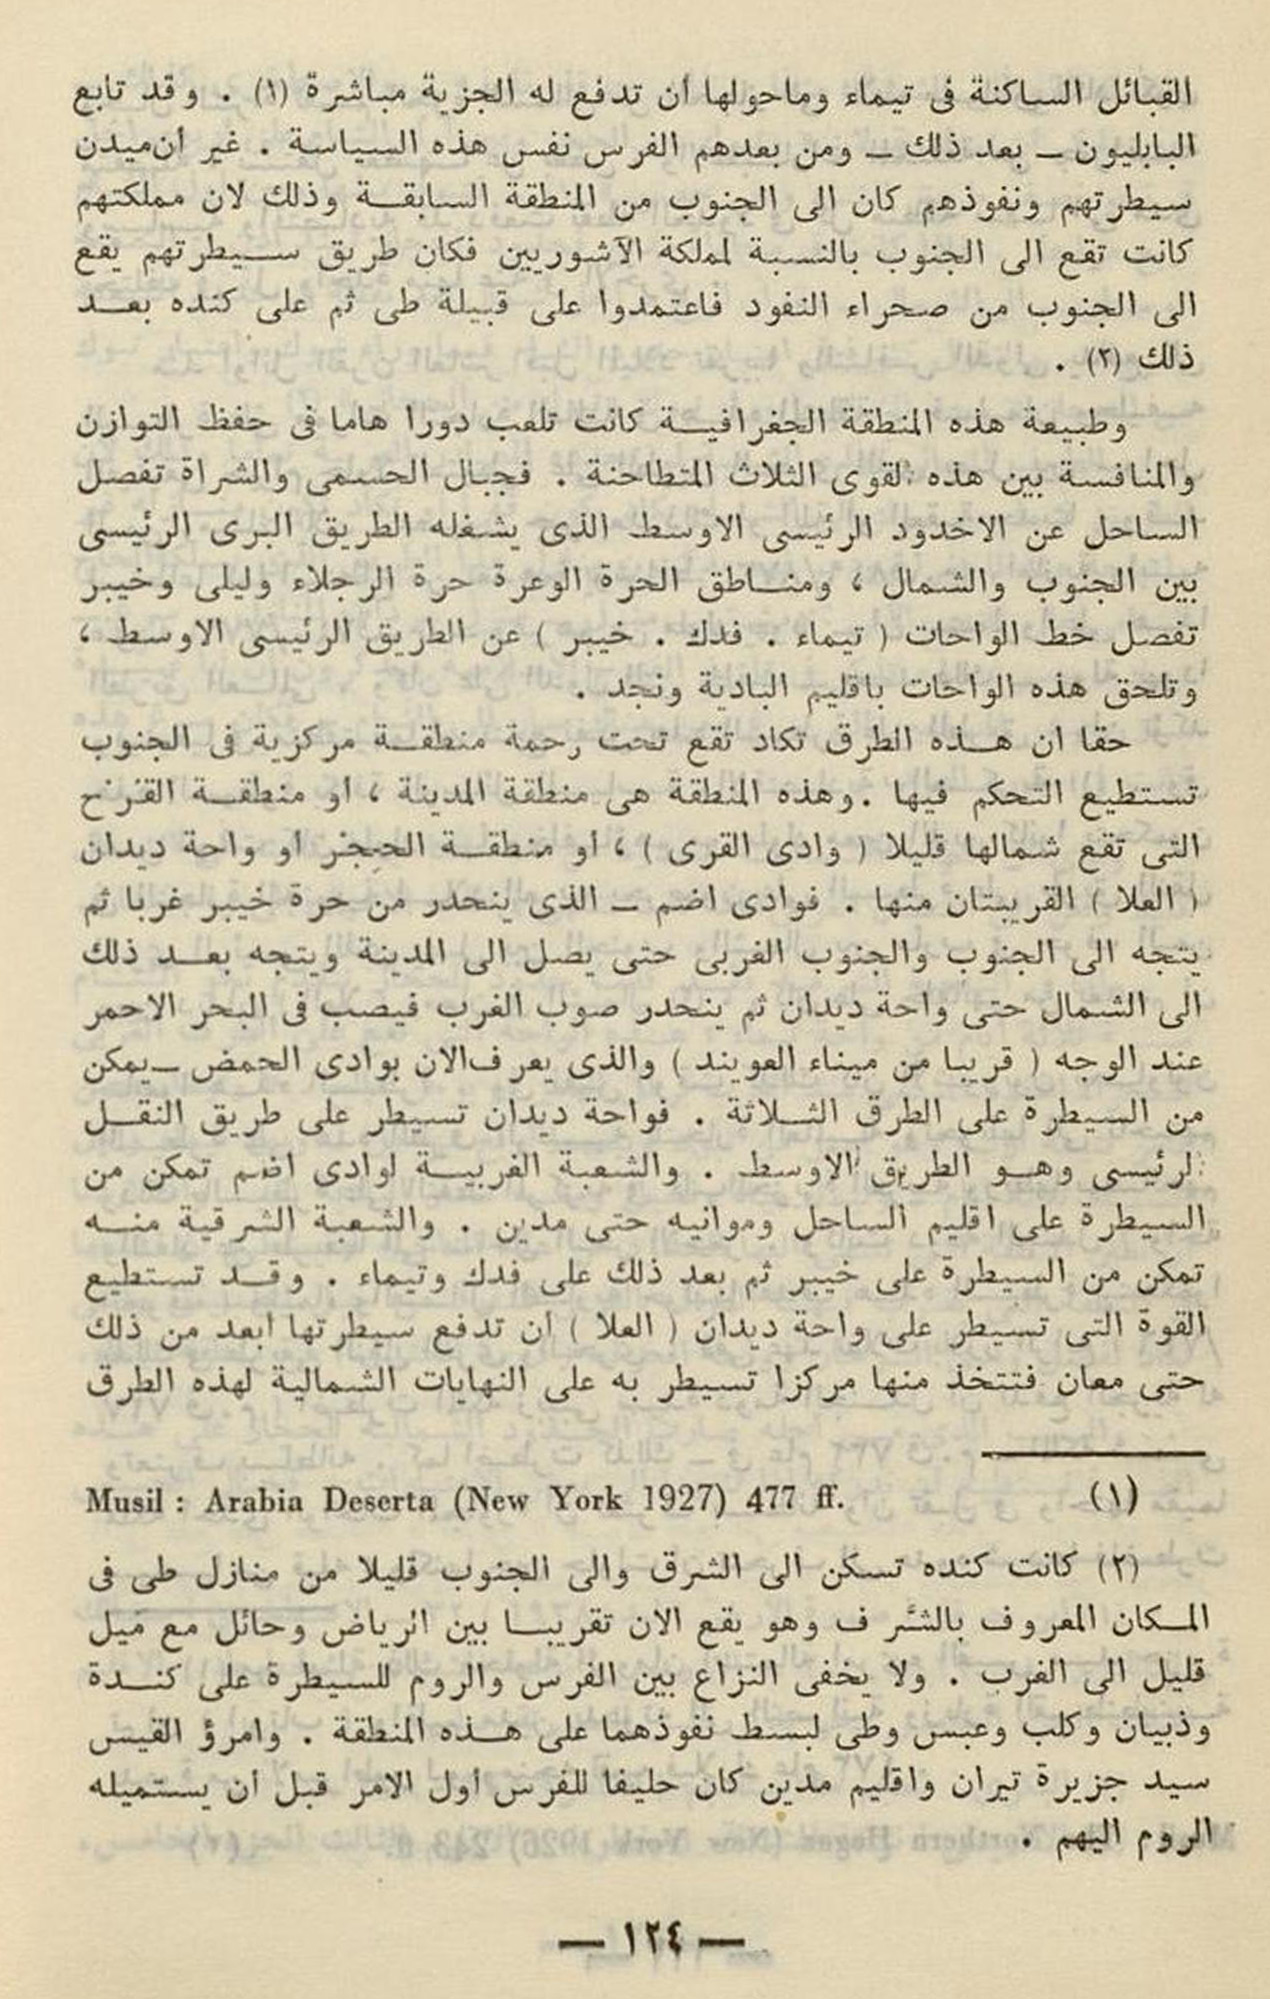 القبائل الساكنة فى تيماء وماحولها أن تدفع له الجزية مباشرة (١) . وقد تابع
البابليون ـ بعد ذلك ـ ومن بعدهم الفرس نفس هذه السياسة . غير أن ميدن
سيطرتهم ونفوذهم كان الى الجنوب من المنطقة السابقـة وذلك لان مملكتهم
كانت تقع الى الجنوب بالنسبة لمملكة الآشوريين فكان طريق سـيطرتهم يقع
الى الجنوب من صحراء النفود فاعتمدوا على قبيلة طى ثم على كنده بعـد
ذلك (٢) .
وطبيعة هذه المنطقة الجغرافيـة كانت تلعب دورا هاما فى حفظ التوازن
والمنافسة بين هذه القوى الثلاث المتطاحنة . فجبال الحسمى والشراة تفصل
الساحل عن الاخدود الرئيسى الاوسط الذى يشغله الطريق البرى الرئيسى
بين الجنوب والشمال ، ومنـاطق الحرة الوعرة حرة الرجلاء وليلى وخيبر
تفصل خط الواحات ( تيماء . فدك . خيبر ) عن الطريق الرئيسى الاوسط ،
وتلحق هذه الواحات باقليم البادية ونجد .
حقا ان هـذه الطرق تكاد تقع تحت رحمة منطقـة مركزية فى الجنوب
تستطيع التحكم فيها . وهذه المنطقة هى منطقة المدينة ، أو منطقـة القُرْح
التى تقع شمالها قليلا ( وادى القرى ) ، أو منطقـة الحِجْر أو واحة ديدان
( العلا ) القريبتان منها . فوادى اضم ـ الذى ينحدر من حرة خيبر غربا ثم
يتجه الى الجنوب والجنوب الغربى حتى يصل الى المدينة ويتجه بعـد ذلك
الى الشمال حتى واحة ديدان ثم ينحدر صوب الغرب فيصب فى البحر الاحمر
عند الوجه ( قريبا من ميناء العويند ) والذى يعرف الان بوادى الحمض ـ يمكن
من السيطرة على الطرق الثـلاثة . فواحة ديدان تسيطر على طريق النقـل
الرئيسى وهـو الطريق الاوسط . والشعبة الغربيـة لوادى اضم تمكن من
السيطرة على اقليم الساحل وموانيه حتى مدين . والشعبة الشرقية منـه
تمكن من السيطرة على خيبر ثم بعد ذلك على فدك وتيماء . وقـد تستطيع
القوة التى تسيطر على واحة ديدان ( العلا ) أن تدفع سيطرتها أبعد من ذلك
حتى معان فتتخذ منها مركزا تسيطر به على النهايات الشمالية لهذه الطرق
(١) Musil : Arabia Deserta (New York 1927) 477 ff.
(٢) كانت كنده تسكن الى الشرق والى الجنوب قليلا من منازل طى فى
المـكان المعروف بالشَّرف وهو يقع الان تقريبـا بين الرياض وحائل مع مَيل
قليل الى الغرب . ولا يخفى النزاع بين الفرس والروم للسيطرة على كنـدة
وذبيان وكلب وعبس وطى لبسط نفوذهما على هـذه المنطقة . وامرؤ القيس
سيد جزيرة تيران واقليم مدين كان حليفا للفرس أول الامر قبل أن يستميله
الروم اليهم .
— ١٢٤ —